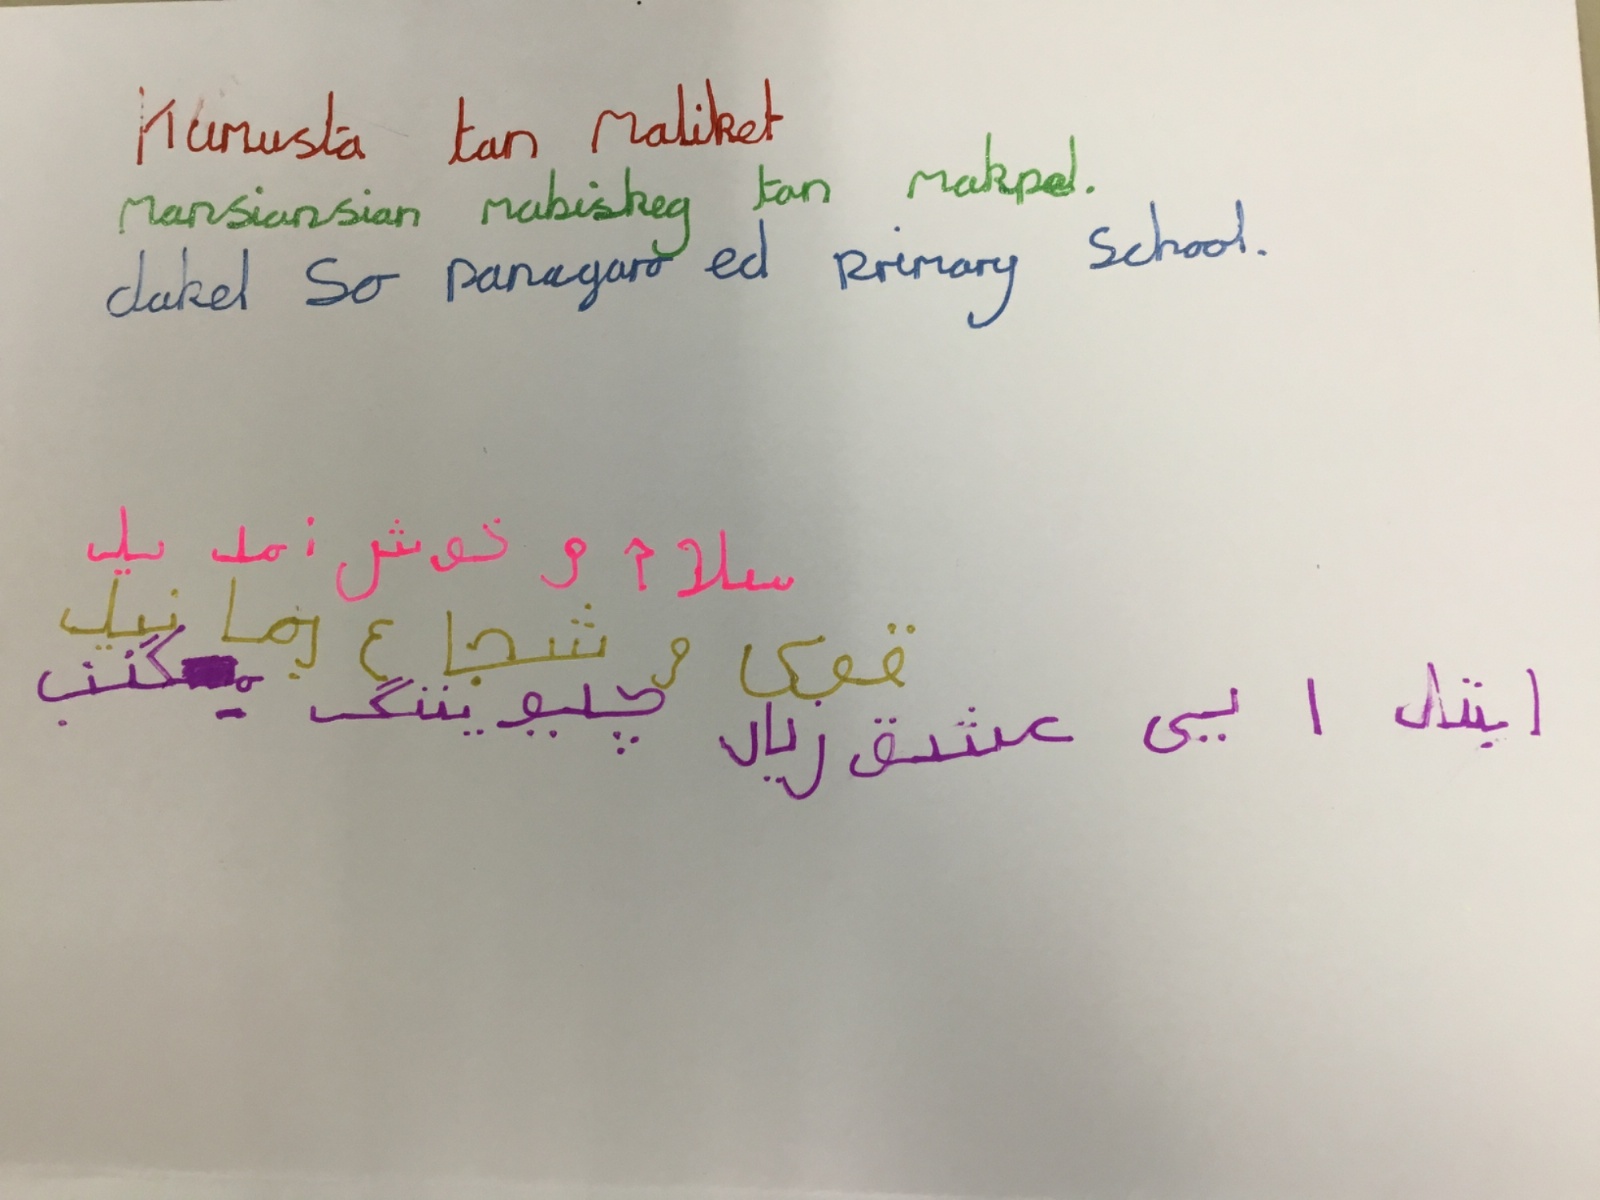 Kumusta tan maliket
mansiansian mabiskeg tan makpel.
dakel so panagaro ed primary School.
سلام و خوش امد ید
قوی و شجا ع بما نید
ا ینتدا ا یی عشق زیاد چلبو یننگ